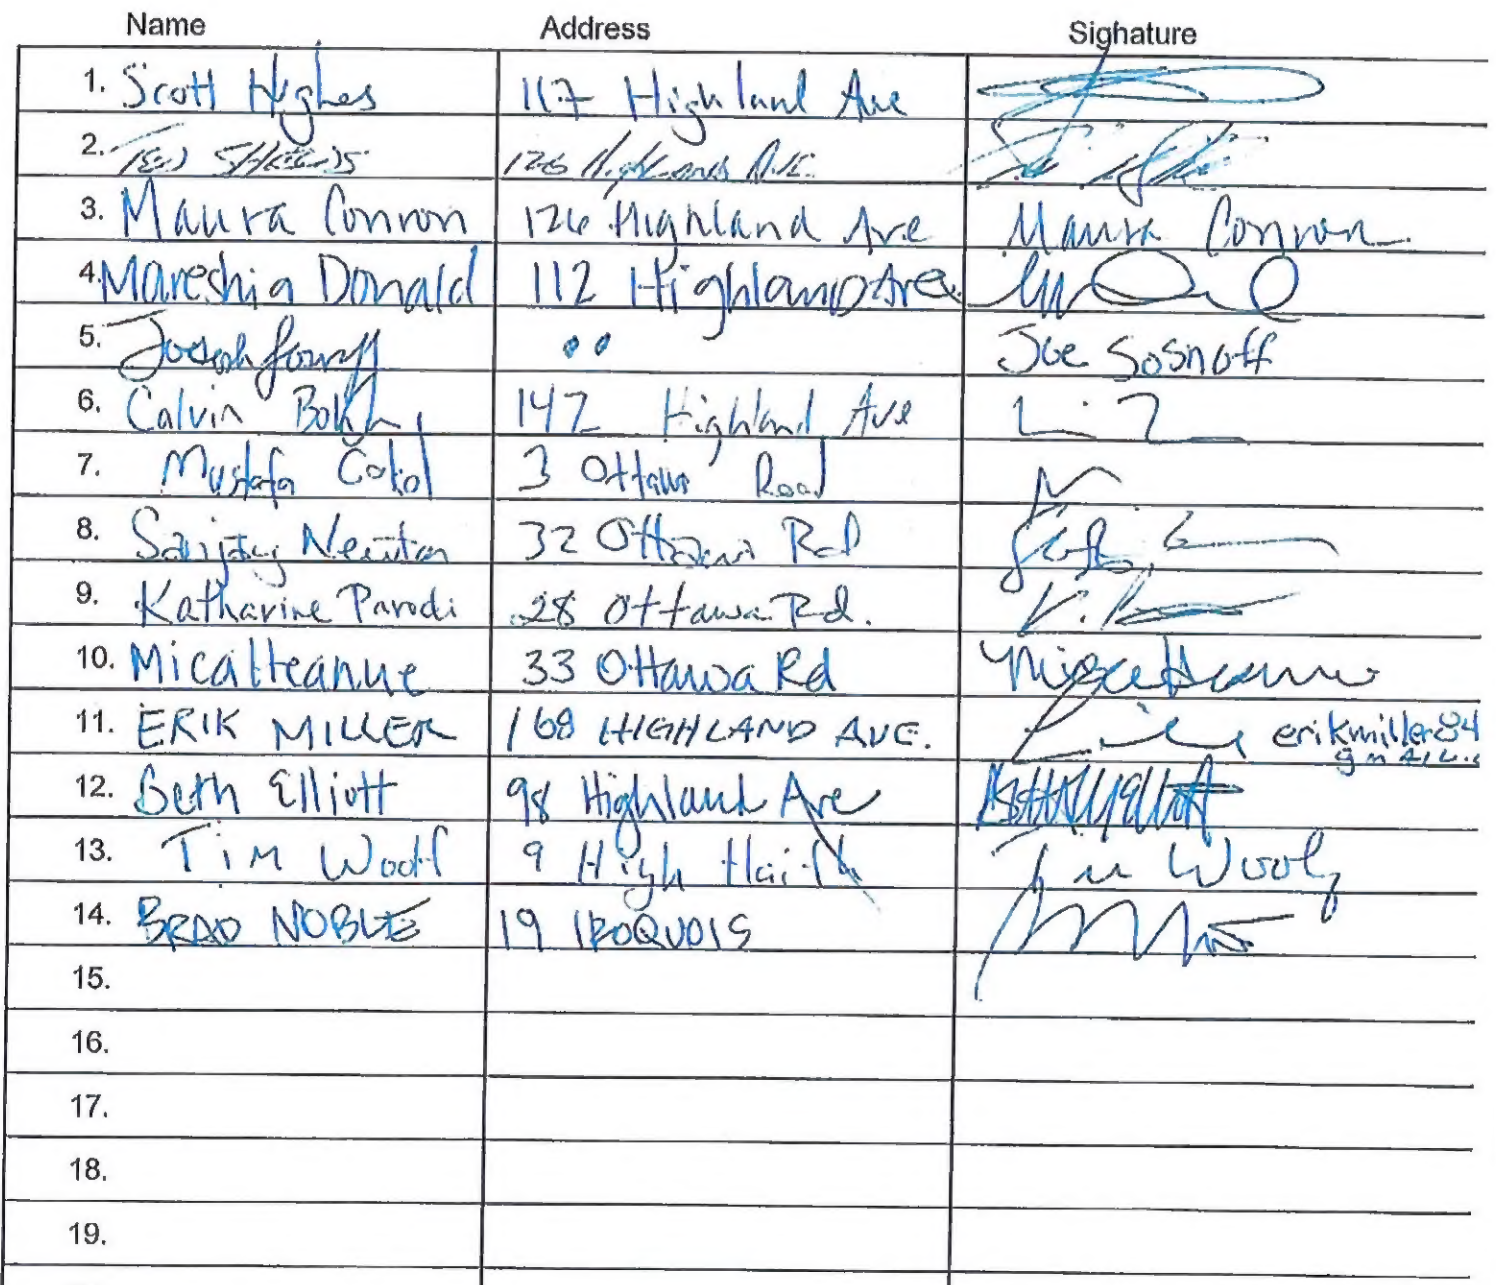 Name Address Signature
1. Scott Hughes 117 Highland Ave
2. 126 Highland Ave.
3. Maura Conron 126 Highland Ave Maura Conron
4. Mareshia Donald 112 Highland Ave
5. Joseph " Joe Sosnoff
6. Calvin 142 Highland Ave
7. Mustafa Cokol 3 Ottawa Road
8. Sanjay Newton 32 Ottawa Rd
9. Katharine Parodi 28 Ottawa Rd. K.
10. Mica Heanue 33 Ottawa Rd Mica Heanue
11. ERIK MILLER 168 HIGHLAND AVE. erikmiller84
gmail.c
12. Beth Elliott 98 Highland Ave Beth Elliott
13. Tim Woolf 9 High Haith Tim Woolf
14. BRAD NOBLE 19 IROQUOIS
15.
16.
17.
18.
19.